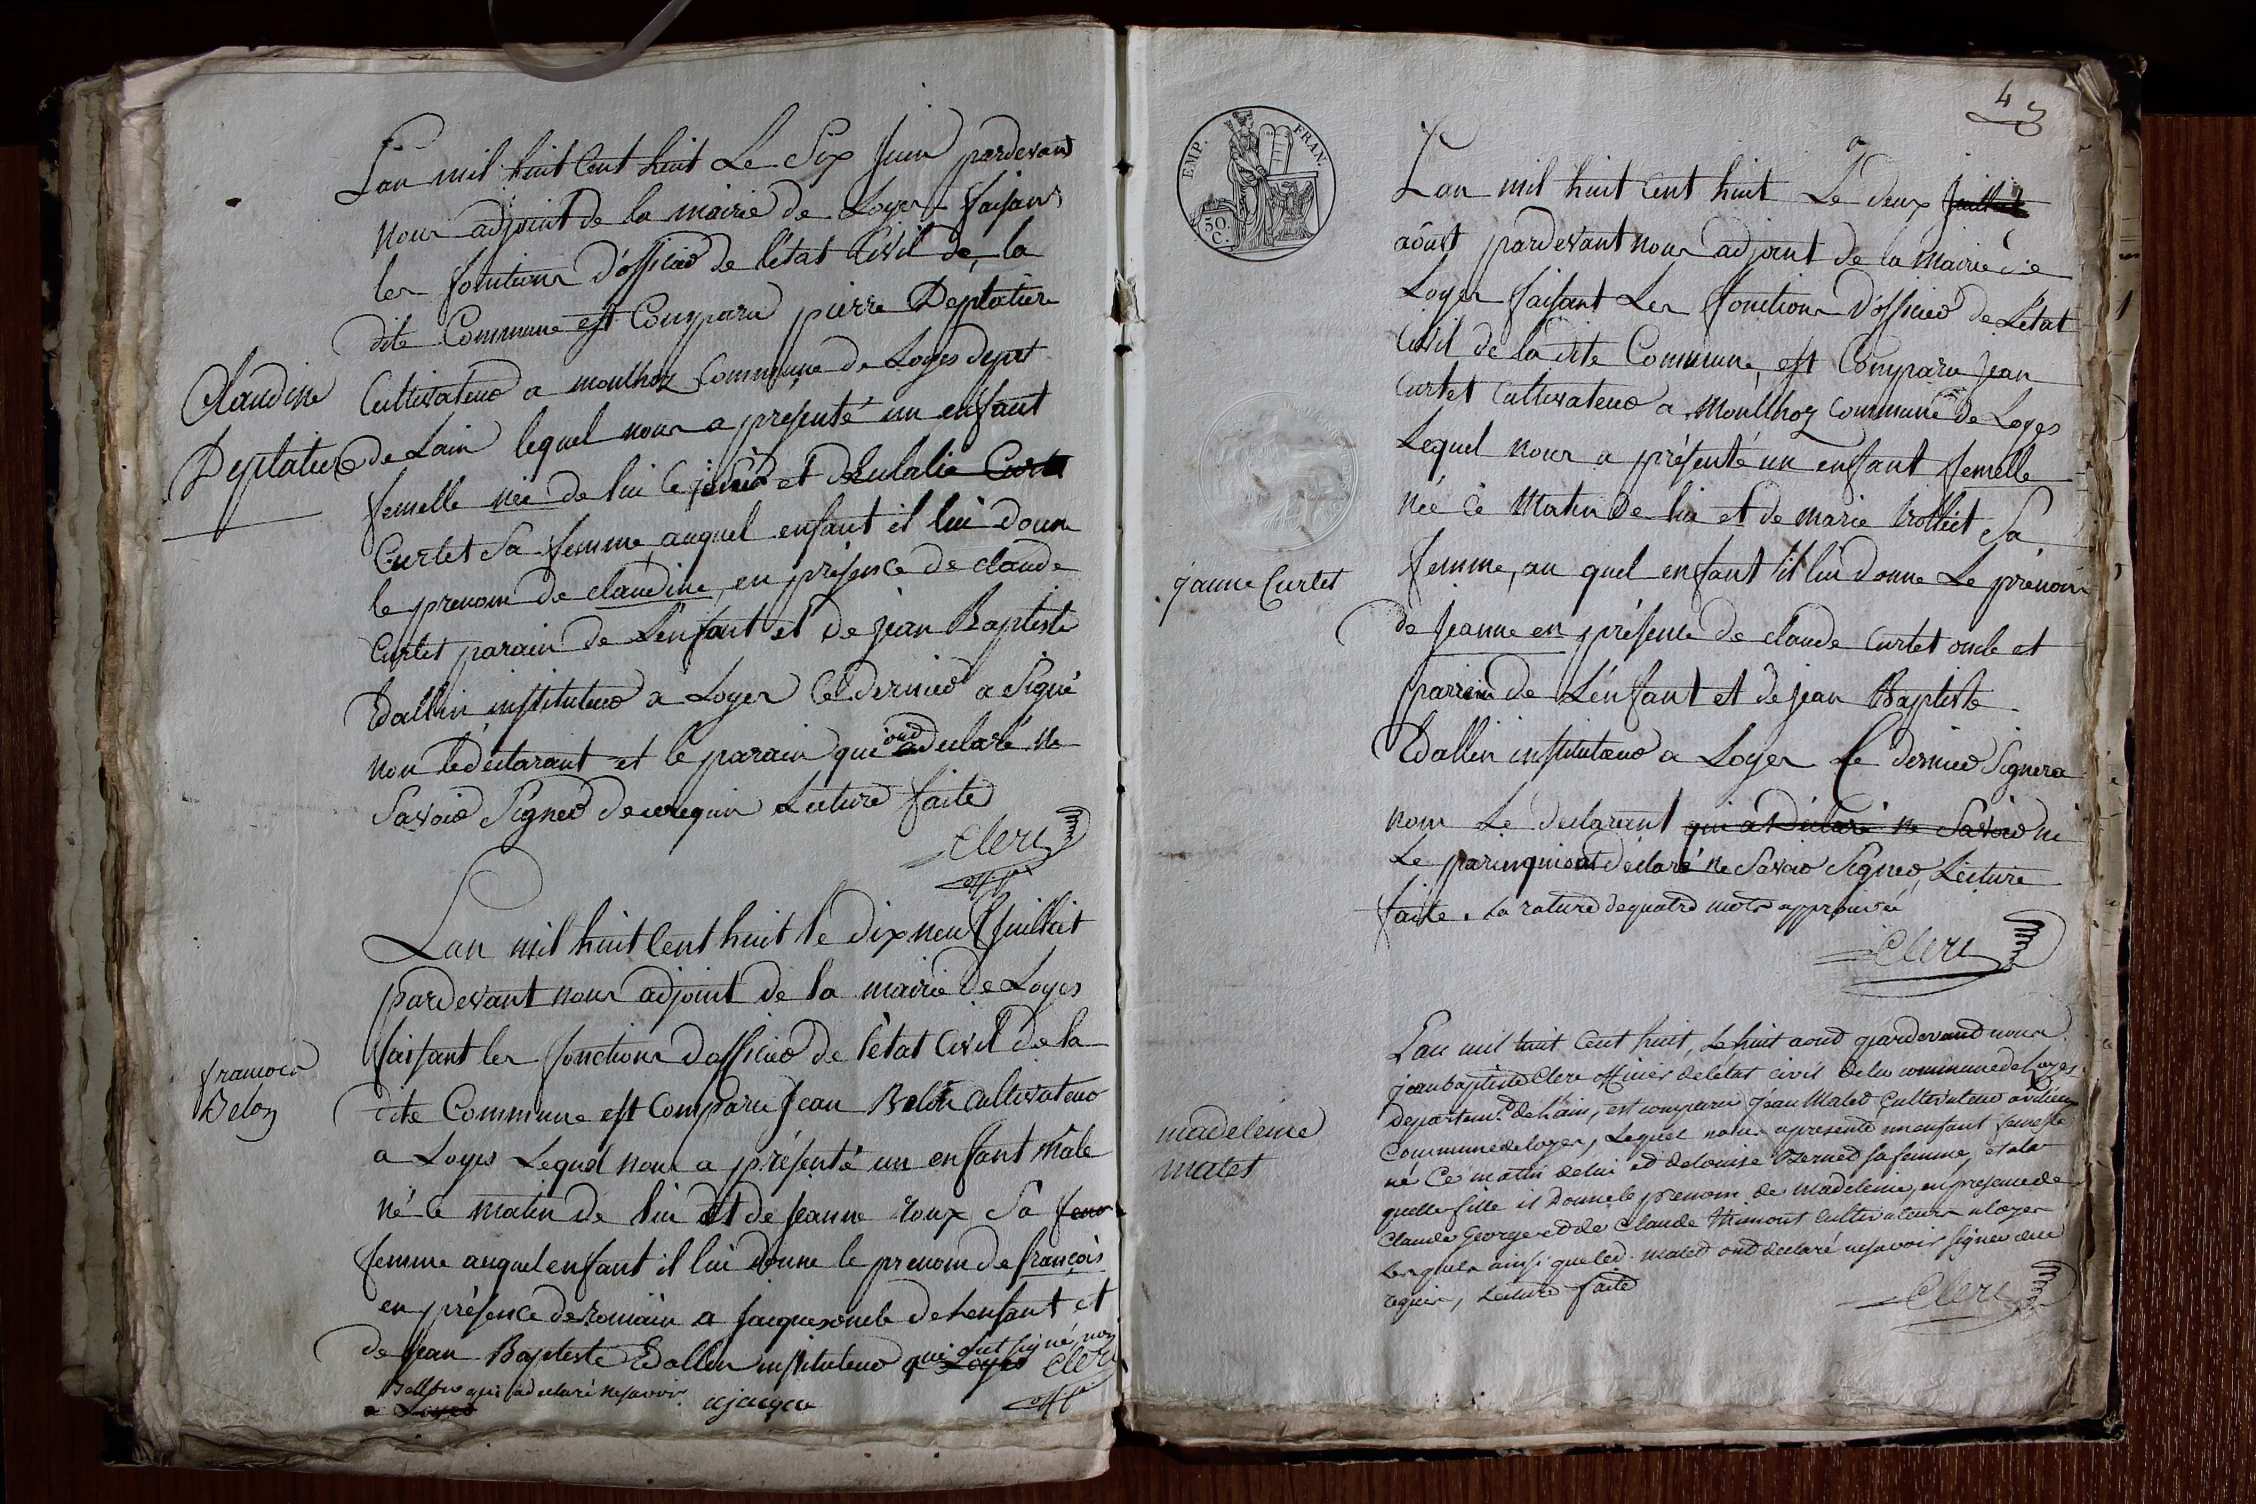 Lan mil huit Cent huit Le Six Juin pardevant
nous adjoint de la mairie de Loyes faisant
les fonctions d'officier de l'état Civil de la
dite Commune est Comparu pierre Deplatière
Claudine
Deplatiere
Cultivateur a moulhoz Commune de Loyes dept
de Lain lequel nous a présenté un enfant
femelle née de lui ce et d'Eulalie
Curtet Sa femme, auquel enfant il lui donne
le prenom de claudine, en présence de claude
Curtet parain de L'enfant et de jean Baptiste
Dallin instituteur a Loyes Ce dernier a Signé
non le déclarant et le parain qui ont déclaré ne
Savoir Signer de ce requis Lecture faite
Clerc
off.er
Lan mil huit Cent huit le dix neuf Juillet
pardevant nous adjoint de la mairie de Loyes
faisant les fonctions d'officier de l'état Civil de la
françois
Belon
dite Commune est Comparu Jean Belon Cultivateur
a Loyes Lequel nous a présenté un enfant mâle
né ce matin de lui et de Jeanne roux Sa
femme auquel enfant il lui donne le prenom de françois
en présence de romain a Jacques oncle de Lenfant et
de Jean Baptiste Dallin instituteur qui ont signé non
Bellon qui a declaré ne savoir
ajacque
Clerc
off.er
4
EMP. FRAN.
50 C.
Lan mil huit Cent huit Le deux Juillet
aôust pardevant nous adjoint de la Mairie de
Loyes faisant Les fonctions D'officier de L'état
Civil de la dite Commune, est Comparu Jean
Curtet Cultivateur a Moullhoz Commune de Loyes
Lequel nous a présenté un enfant femelle
née ce Matin de lui et de marie trolliet Sa
femme, au quel enfant il lui donne Le prénom
janne Curtet
de Jeanne en présence de claude Curtet oncle et
parrain de L'enfant et de jean Baptiste
Dallin instituteur a Loyes Le dernier Signera
non Le declarant qui a Déclaré ne Savoir ni
Le parin qui ont déclaré ne Savoir Signer, Lecture
faite. La rature de quatre mots approuvée
Clerc
Lan mil huit Cent huit, Le huit aout pardevand nous
jean baptiste Clerc officier de l'état civil de la commune de Loyes
departemt. de l'ain, est comparu jean Matet Cultivateur
madeleine
matet
Commune de loyes, Lequel nous a presenté un enfant femelle
né Ce matin de lui et de louise Bernet sa femme, et a la
quelle fille il Donne le prenom de madeleine, en présence de
Claude George et de Claude Humont Cultivateurs a loyes
lesquels ainsi que led. matet ont declaré ne savoir signer de ce
requis, lecture faite
Clerc